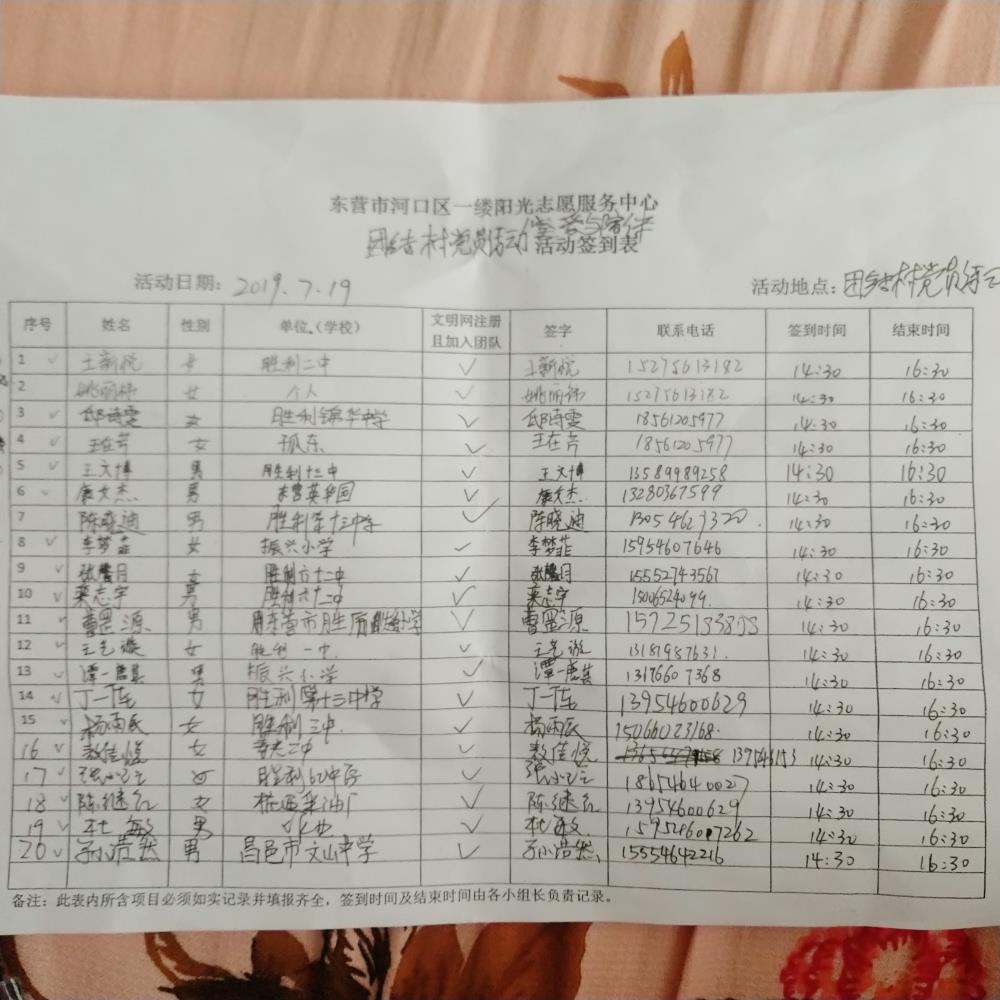 东营市河口区一缕阳光志愿服务中心
团结村党员活动 活动签到表
活动日期：2019.7.19 活动地点：团结村党员活动
序号 姓名 性别 单位（学校） 文明网注册且加入团队 签字 联系电话 签到时间 结束时间
1 ✓ 王新悦 女 胜利二中 ✓ 王新悦 15275613182 14:30 16:30
2 ✓ 姚丽伟 女 个人 ✓ 姚丽伟 15275613182 14:30 16:30
3 ✓ 邸诗雯 女 胜利锦华中学 ✓ 邸诗雯 18561205977 14:30 16:30
4 ✓ 王在芹 女 孤东 ✓ 王在芹 18561205977 14:30 16:30
5 ✓ 王文博 男 胜利十三中 ✓ 王文博 13589989258 14:30 16:30
6 ✓ 康文杰 男 东营英华园 ✓ 康文杰 13280367599 14:30 16:30
7 陈晓迪 男 胜利第十三中学 ✓ 陈晓迪 13054629320 14:30 16:30
8 ✓ 李梦菲 女 振兴小学 ✓ 李梦菲 15954607646 14:30 16:30
9 ✓ 张馨月 女 胜利六十二中 ✓ 张馨月 15552743567 14:30 16:30
10 ✓ 栾志宇 男 胜利六十二中 ✓ 栾志宇 1506524099 14:30 16:30
11 ✓ 曹罡源 男 东营市胜 小学 ✓ 曹罡源 14:30 16:30
12 ✓ 王艺璇 女 胜利一中 ✓ 王艺璇 13181987631 14:30 16:30
13 ✓ 谭一 男 振兴小学 ✓ 谭一 13176607368 14:30 16:30
14 ✓ 丁一 女 胜利第十三中学 ✓ 丁一 13954600629 14:30 16:30
15 ✓ 杨雨辰 女 胜利三中 ✓ 杨雨辰 15066023168 14:30 16:30
16 ✓ 敖佳悦 女 二中 ✓ 敖佳悦 14:30 16:30
17 ✓ 张 女 胜利 中 ✓ 张 18654640027 14:30 16:30
18 ✓ 陈继红 女 桩西采油厂 ✓ 陈继红 13954600629 14:30 16:30
19 ✓ 杜敏 男 ✓ 杜敏 14:30 16:30
20 ✓ 孙浩然 男 昌邑市文山中学 ✓ 孙浩然 15554642216 14:30 16:30
备注：此表内所含项目必须如实记录并填报齐全，签到时间及结束时间由各小组长负责记录。